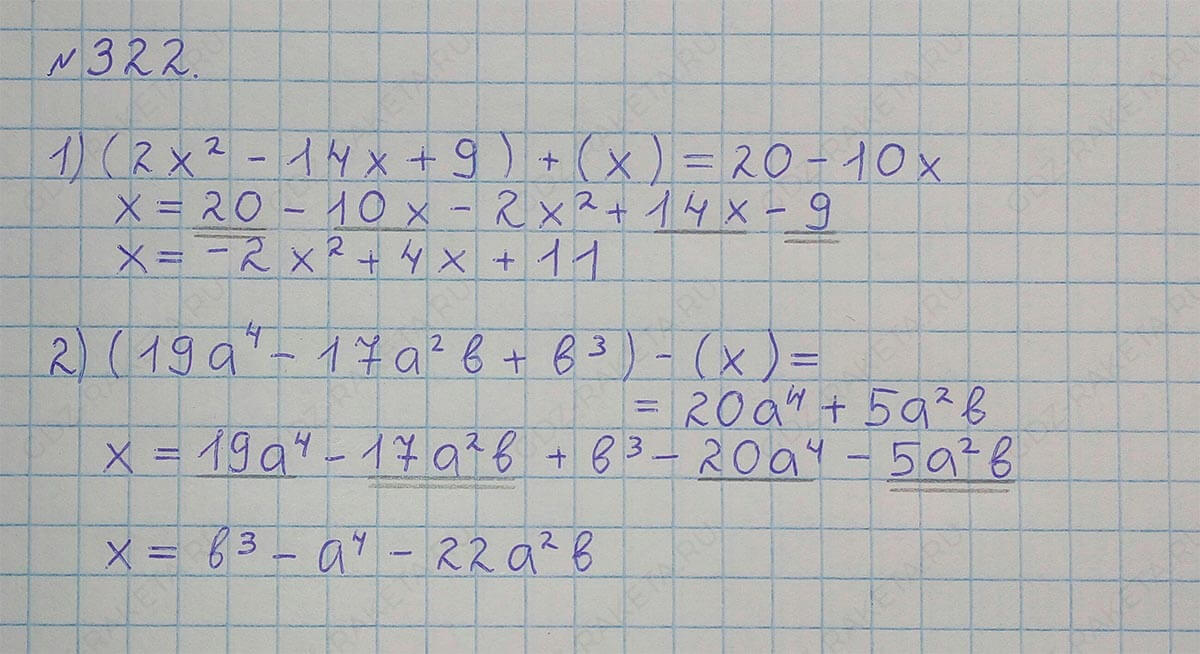 №322.
1) (2x² - 14x + 9) + (x) = 20 - 10x
x = 20 - 10x - 2x² + 14x - 9
x = -2x² + 4x + 11
2) (19a⁴ - 17a²в + в³) - (x) =
= 20a⁴ + 5a²в
x = 19a⁴ - 17a²в + в³ - 20a⁴ - 5a²в
x = в³ - a⁴ - 22a²в